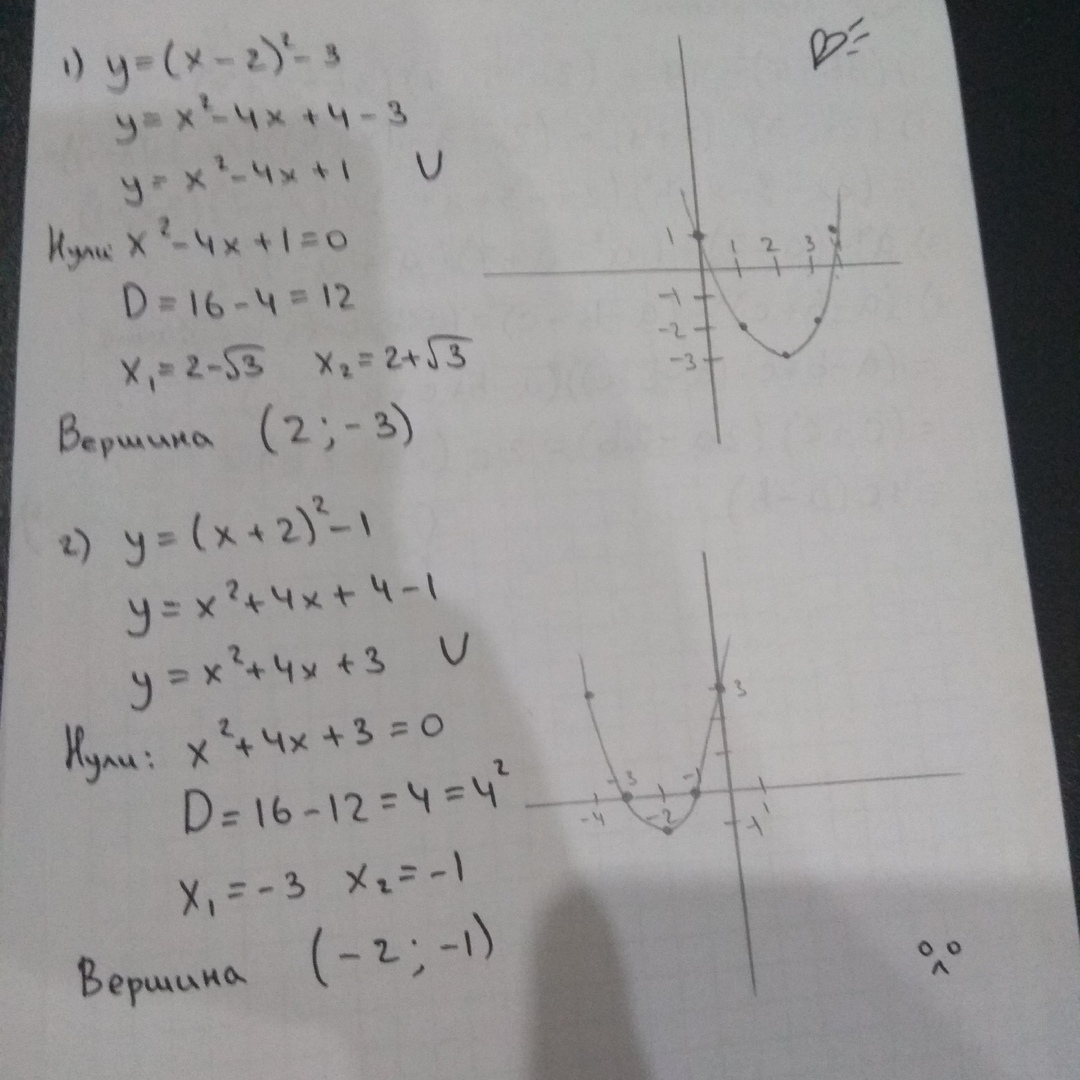 1) y = (x - 2)² - 3
y = x² - 4x + 4 - 3
y = x² - 4x + 1 ∪
Нули: x² - 4x + 1 = 0
D = 16 - 4 = 12
x₁ = 2 - √3 x₂ = 2 + √3
Вершина (2; -3)
1 1 2 3
-1
-2
-3
2) y = (x + 2)² - 1
y = x² + 4x + 4 - 1
y = x² + 4x + 3 ∪
Нули: x² + 4x + 3 = 0
D = 16 - 12 = 4 = 4²
x₁ = -3 x₂ = -1
Вершина (-2; -1)
3
-3 -1
-4 -2 -1 1